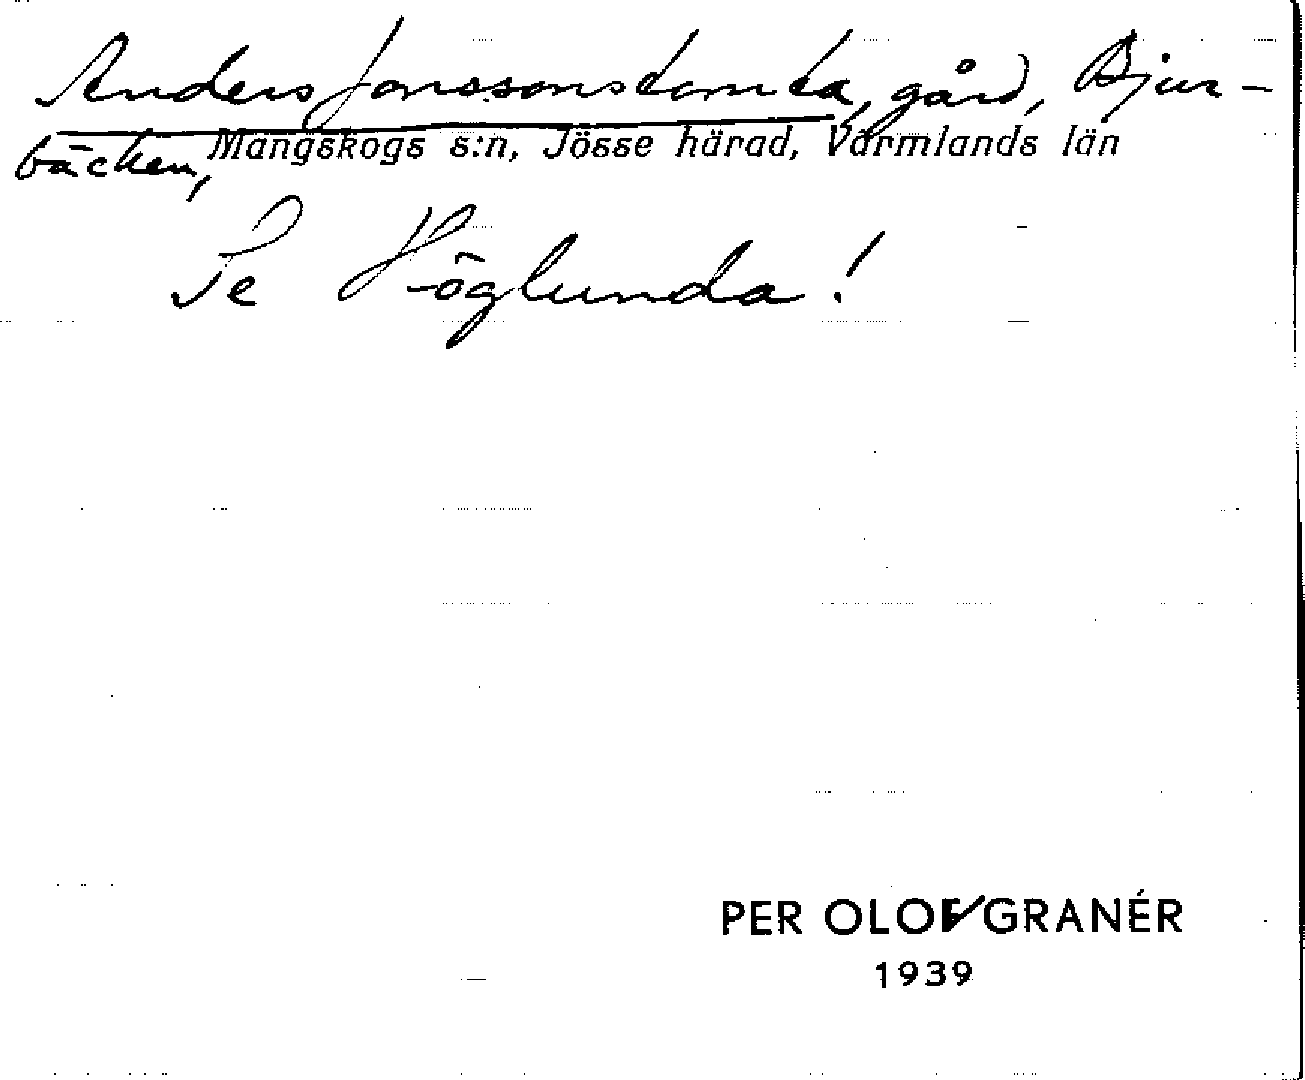 Anders Jonssonstomta, gård, Bjur-
bäcken, Mangskogs s:n, Jösse härad, Värmlands län
Se Höglunda!
PER OLOF GRANÉR
1939